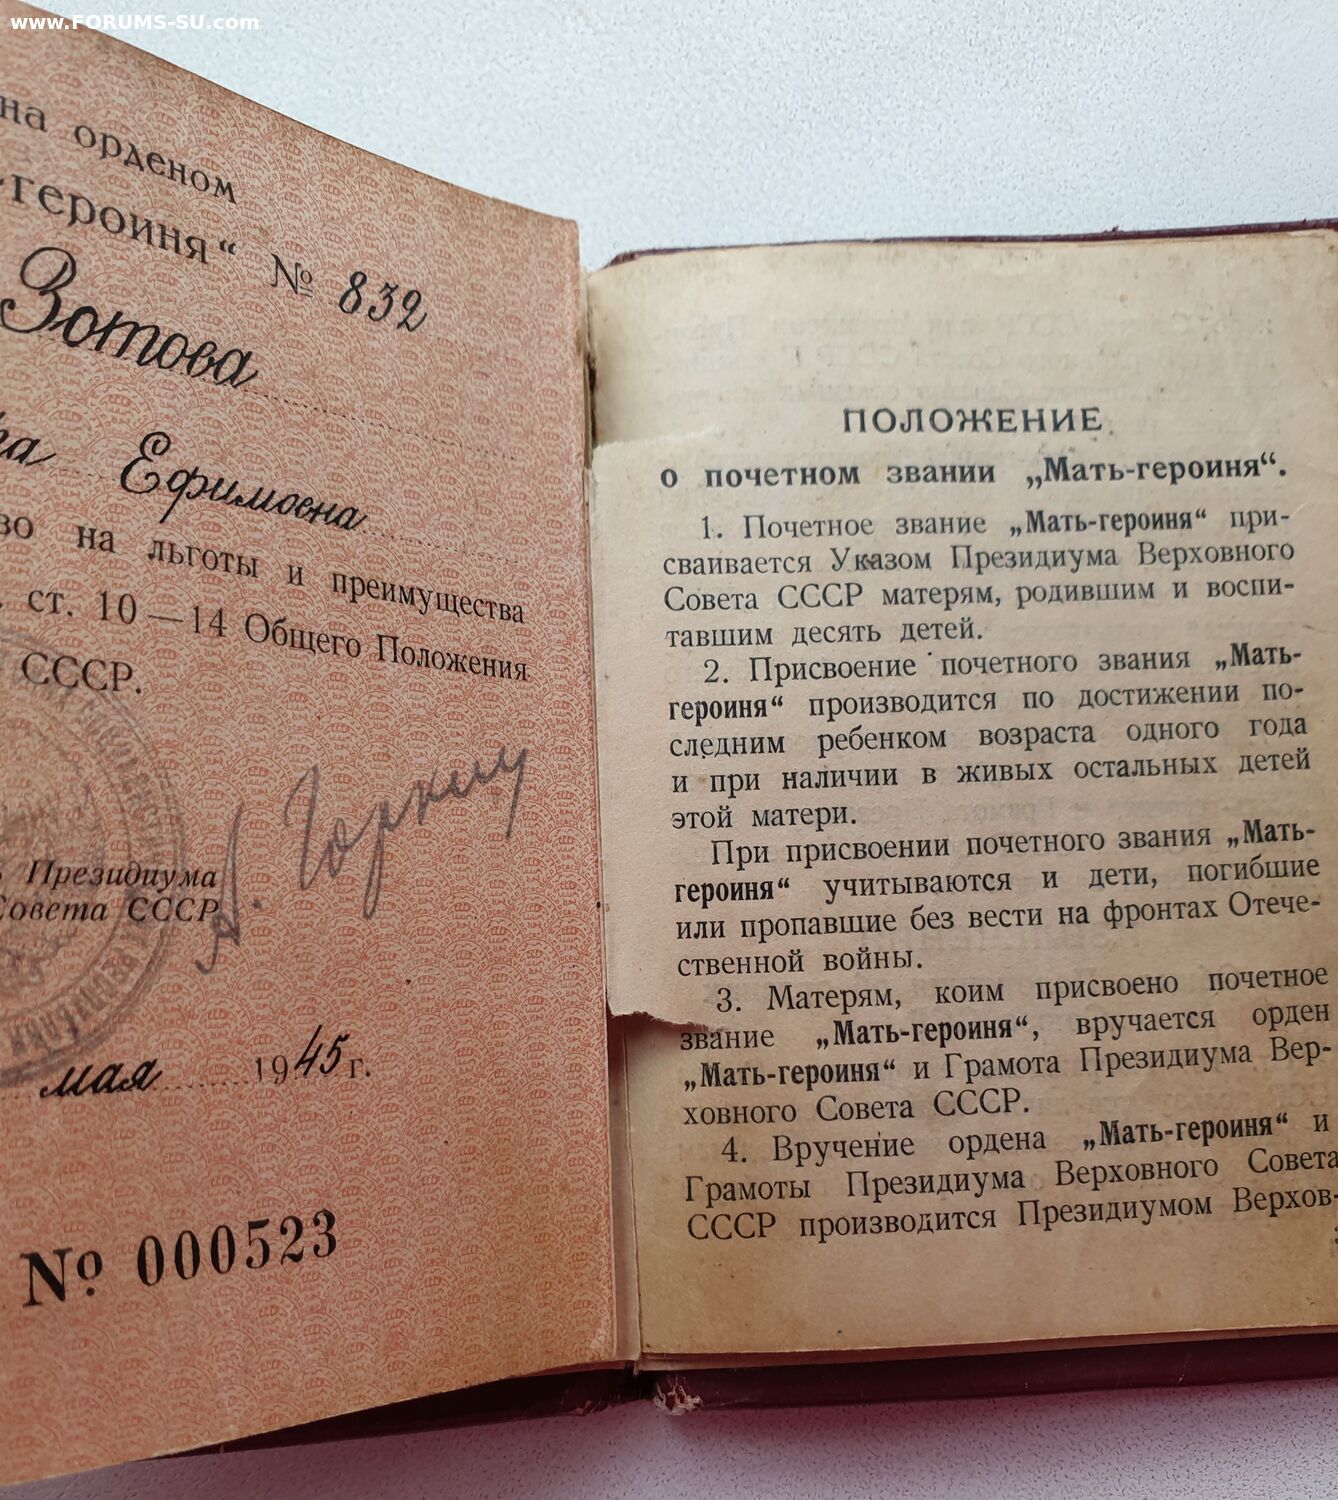 www.FORUMS-SU.com
на орденом
-героиня“ № 832
Зотова
Ефимовна
на льготы и преимущества
ст. 10—14 Общего Положения
СССР.
Президиума
Совета СССР
А. Горкин
мая 1945 г.
№ 000523
ПОЛОЖЕНИЕ
о почетном звании „Мать-героиня“.
1. Почетное звание „Мать-героиня“ при-
сваивается Указом Президиума Верховного
Совета СССР матерям, родившим и воспи-
тавшим десять детей.
2. Присвоение почетного звания „Мать-
героиня“ производится по достижении по-
следним ребенком возраста одного года
и при наличии в живых остальных детей
этой матери.
При присвоении почетного звания „Мать-
героиня“ учитываются и дети, погибшие
или пропавшие без вести на фронтах Отече-
ственной войны.
3. Матерям, коим присвоено почетное
звание „Мать-героиня“, вручается орден
„Мать-героиня“ и Грамота Президиума Вер-
ховного Совета СССР.
4. Вручение ордена „Мать-героиня“ и
Грамоты Президиума Верховного Совета
СССР производится Президиумом Верхов-